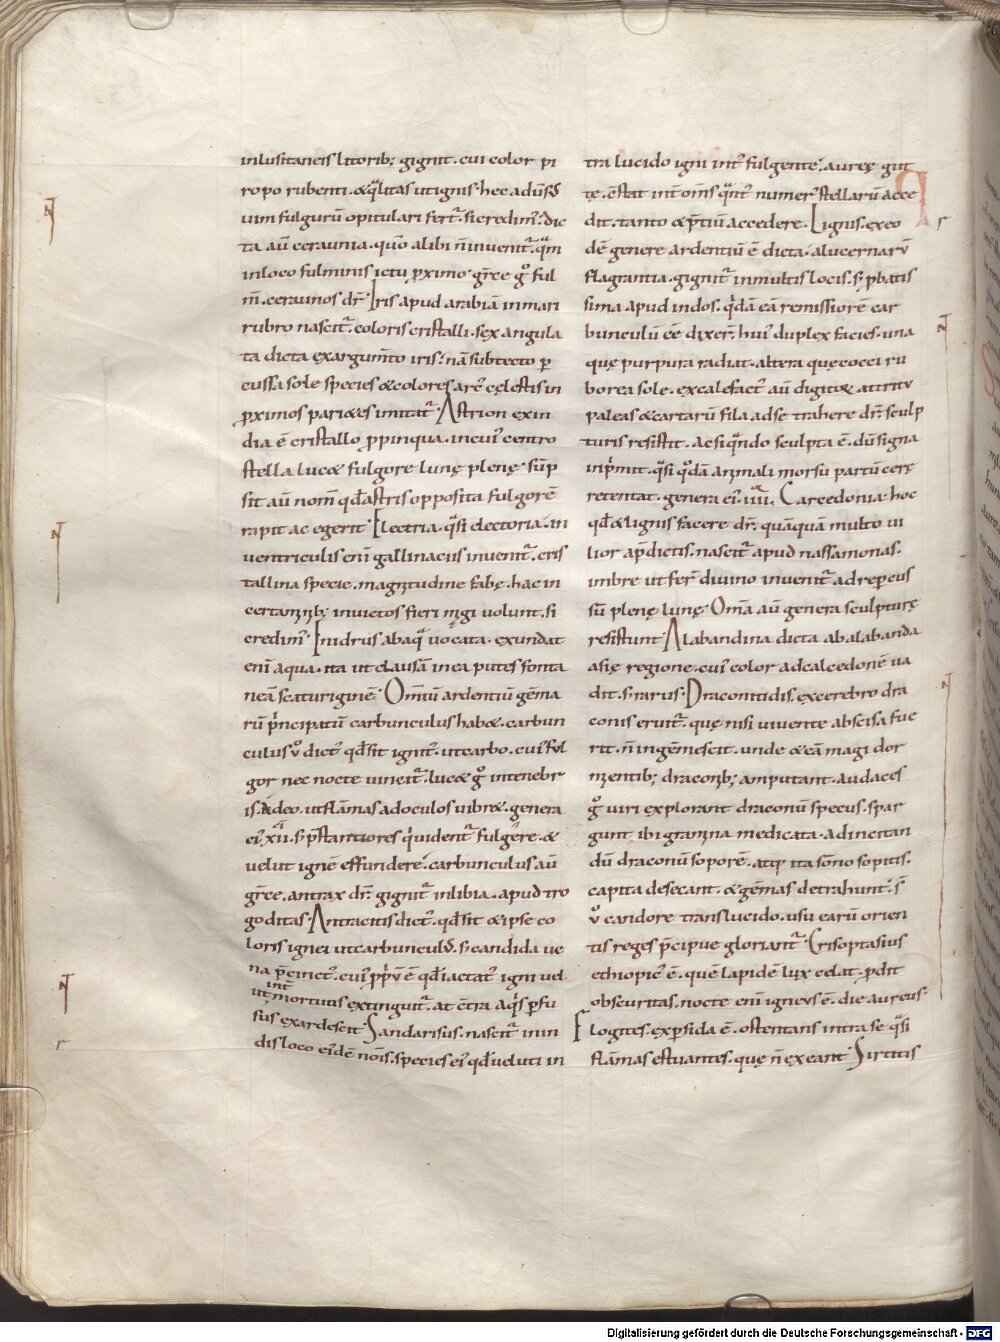 inlusitaneis litorib; gignit. cui color pi
ropo rubenti. & q̃litas ut ignis. hec aduers̃
uim fulgurũ opitulari fert̃. si credim̃. Dic
ta aũ ceraunia. quõ alibi ñ inuenit̃. q̃m
inloco fulminis ictu ꝓximo. grẽce g̊ ful
m̃. ceraunos dr̃. Iris apud arabiã inmari
rubro nascit̃. coloris cristalli. sex angula
ta dicta exargum̃to iris. nã subtecto ꝑ
cussa sole species & colores arc̃ cęlestis in
ꝓximos pari&es imitat̃. Astrion exin
dia ẽ cristallo ꝓpinqua. incui᷒ centro
stella luc& fulgore lunę plenę. sũp
sit aũ nom̃ qđ astris opposita fulgorẽ
rapit ac egerit. Electria. q̃si electoria. in
uentriculis eni᷒ gallinaciis inuenit̃. cris
tallina specie. magnitudine fabę. hac in
certaminib; inuictos fieri magi uolunt. si
credim᷒. Enidrus abaq̃ uocata. exundat
eni᷒ aqua. ita ut clausã inea putes fonta
neã scaturiginẽ. Omniũ ardentiũ gẽma
rũ p̃ncipatũ carbunculus hab&. carbun
culus v̊ dict᷒ qđ sit ignit᷒. ut carbo. cui᷒ ful
gor nec nocte uincit̃. luc& g̊ intenebr
is. Adeo. ut flãmas adoculos uibr&. genera
ei᷒ xii. s; p̃stantiores q̇ uident̃ fulgere. &
uelut ignẽ effundere. carbunculus aũ
grẽce. antrax dr̃. gignit̃ inlibia. apud tro
goditas. Antracitis dict᷒. qđ sit & ipse co
loris ignei ut carbuncul᷒. s; candida ue
na p̃cinct᷒. cui᷒ ꝓp̃v̄ ẽ qđ iactat᷒ igni uel
ut int̃mortuus extinguit̃. at cõtra aq̃s ꝑfu
sus exardescit. Sandarisus. nascit̃ inin
dis loco ei᷒dẽ nõis. species ei᷒ qđ ueluti in
tra lucido igni int᷒ fulgente᷒. aureę gut
tę. cõstat int̃ om̃s q̃nt᷒ numer᷒ stellarũ acce
dit. tanto & p̃tiũ accedere. Lignis. exeo
dẽ genere ardentiũ ẽ dicta. alucernarũ
flagrantia. gignit̃ inmultis locis. s; ꝓbatis
sima apud indos. q̃dã eã remissiorẽ car
bunculũ eẽ dixer̃. hui᷒ duplex facies. una
quę purpura radiat. altera quę cocci ru
borea sole. excalefact᷒ aũ digitor& attritv
paleas & cartarũ fila adse trahere dr̃. sculp
turis resistit. ac siq̃ndo sculpta ẽ. dũ signa
inp̃mit. q̃si q̊dã animali morsũ partũ cerę
retentat. genera ei᷒. iiii. Carcedonia. hoc
qđ & lignis facere dr̃. quãquã multo ui
lior ap̃dictis. nascit̃ apud nassamonas.
imbre ut fer̃ diuino inuenit̃ adreꝑcus
sũ plenę lunę. Om̃a aũ genera sculpturę
resistunt. Alabandina dicta abalabanda
asię regione. cui᷒ color adcalcedonẽ ua
dit. s; rarus. Dracontitidis. excerebro dra
conis eruit̃. quę nisi uiuente abscisa fue
rit. ñ ingẽmescit. unde & eã magi dor
mientib; draconib; amputant. audaces
g̊ uiri explorant draconũ specus. spar
gunt ibi gramina medicata. adincitan
dũ draconũ soporẽ. atq; ita sõno sopitis.
capita desecant. & gẽmas detrahunt. s̃
v̊ candore translucido. usu earũ orien
tis reges p̃cipue gloriant̃. Crisoptasius
ethiopic᷒ ẽ. quẽ lapidẽ lux celat. ꝓdit
obscuritas. nocte eni᷒ igneus ẽ. die aureus.
Flogites. exꝑsida ẽ. ostentans intra se q̃si
flãmas estuantes. quę ñ exeant. Sirtitis
Digitalisierung gefördert durch die Deutsche Forschungsgemeinschaft - DFG